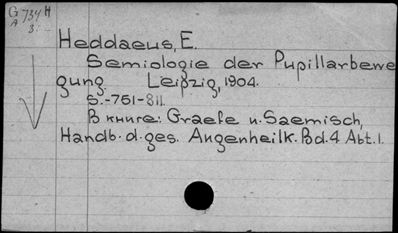 G 734 H
A 3.
Heddaeus, E.
Semiologie der Pupillarbewe
gung. Leipzig, 1904.
S.-751-811.
В книге: Graefe u. Saemisch,
Handb. d. ges. Augenheilk. Bd. 4 Abt. 1.